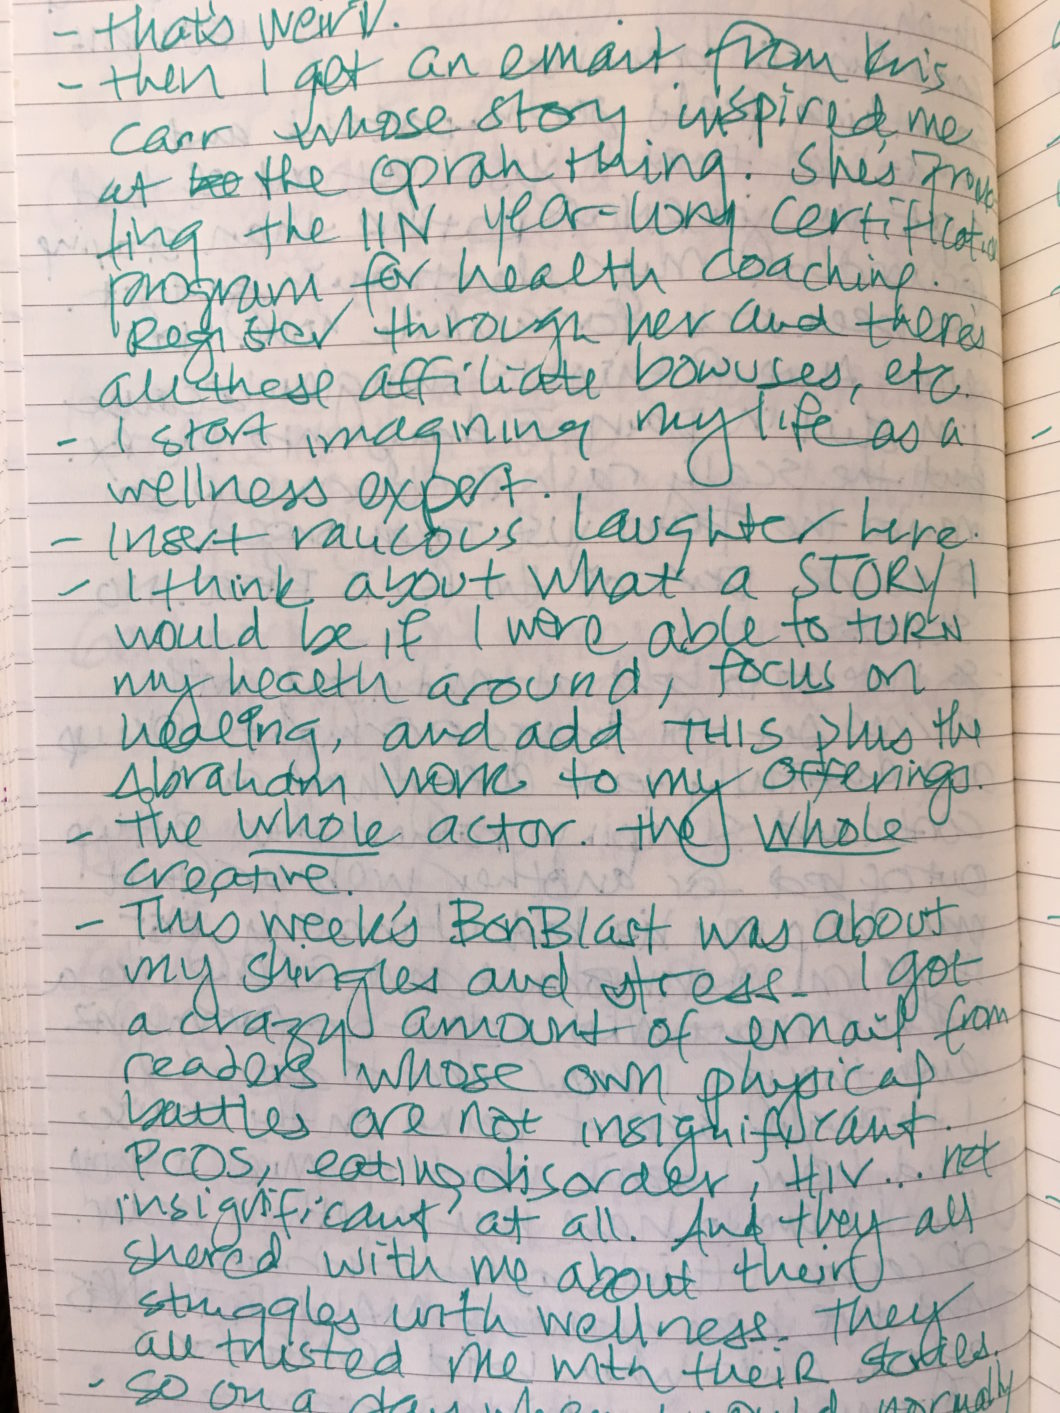 - that's weird.
- then I get an email from Kris
Carr whose story inspired me
at the Oprah thing. She's promo-
ting the IIN year-long certification
program for health coaching.
Register through her and there's
all these affiliate bonuses, etc.
- I start imagining my life as a
wellness expert.
- Insert raucous laughter here.
- I think about what a STORY I
would be if I were able to TURN
my health around, focus on
healing, and add THIS plus the
Abraham work to my offerings.
- The whole actor. The whole
creative.
- This week's BonBlast was about
my shingles and stress. I got
a crazy amount of email from
readers whose own physical
battles are not insignificant.
PCOS, eating disorder, HIV... not
insignificant at all. And they all
shared with me about their
struggles with wellness. They
all trusted me with their stories.
- So on a day when I would normally